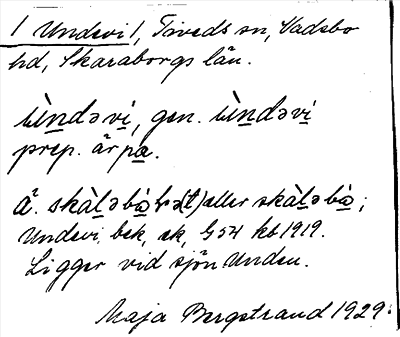 / Undevi /, Tiveds sn, Vadsbo
hd, Skaraborgs län.
ùndəvi, gen. ùndəvi
prep. är pa.
Ä. skàləbà eller skàləbà;
Undevi, bek, ek, G 54 kb 1919.
Ligger vid sjön Unden.
Maja Bergstrand 1929.